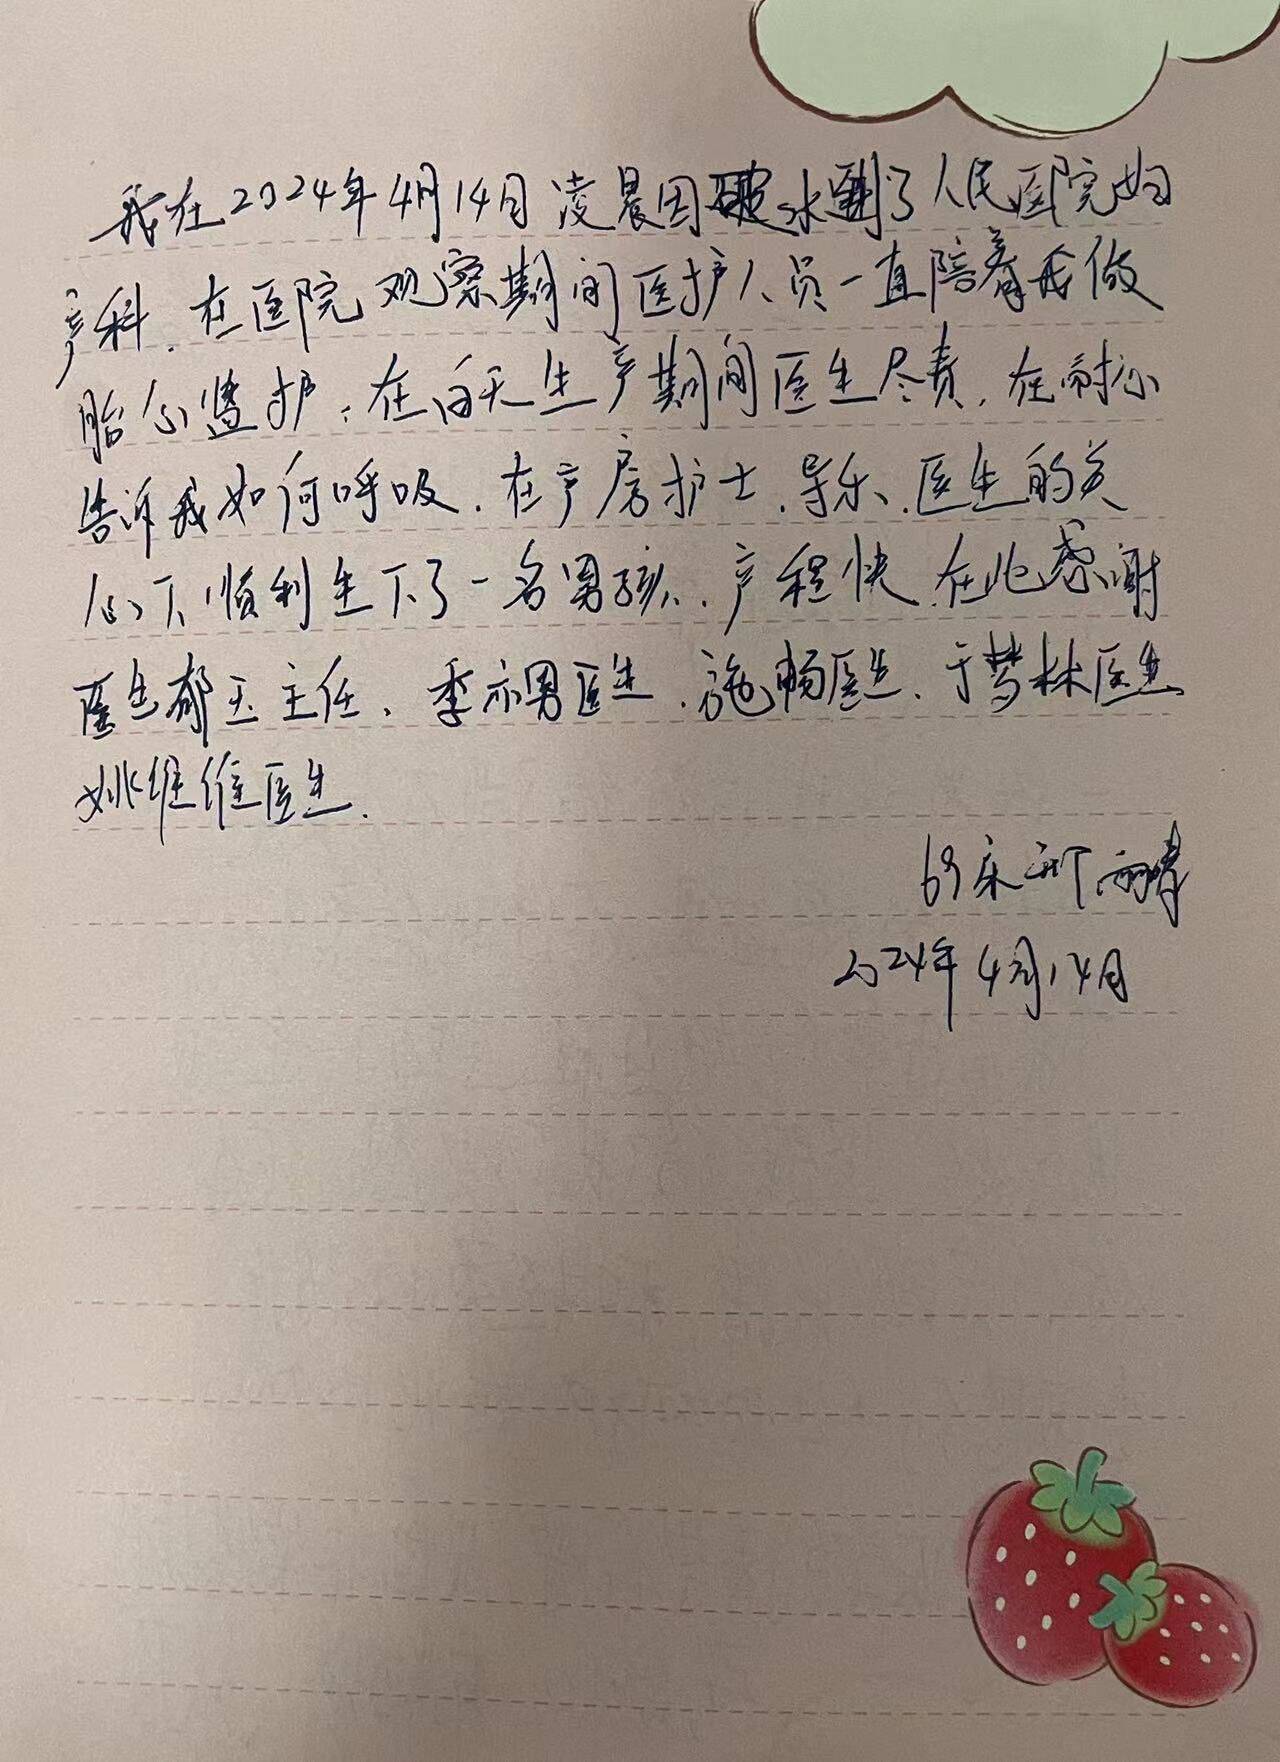 我在2024年4月14日凌晨因破水到了人民医院妇
产科.在医院观察期间医护人员一直陪着我做
胎心监护.在白天生产期间医生尽责.在耐心
告诉我如何呼吸.在产房护士.导乐.医生的关
心下顺利生下了一名男孩.产程快.在此感谢
医生郁玉主任.季亦男医生.施畅医生.于梦林医生
姚维维医生.
69床 邢
2024年4月14日